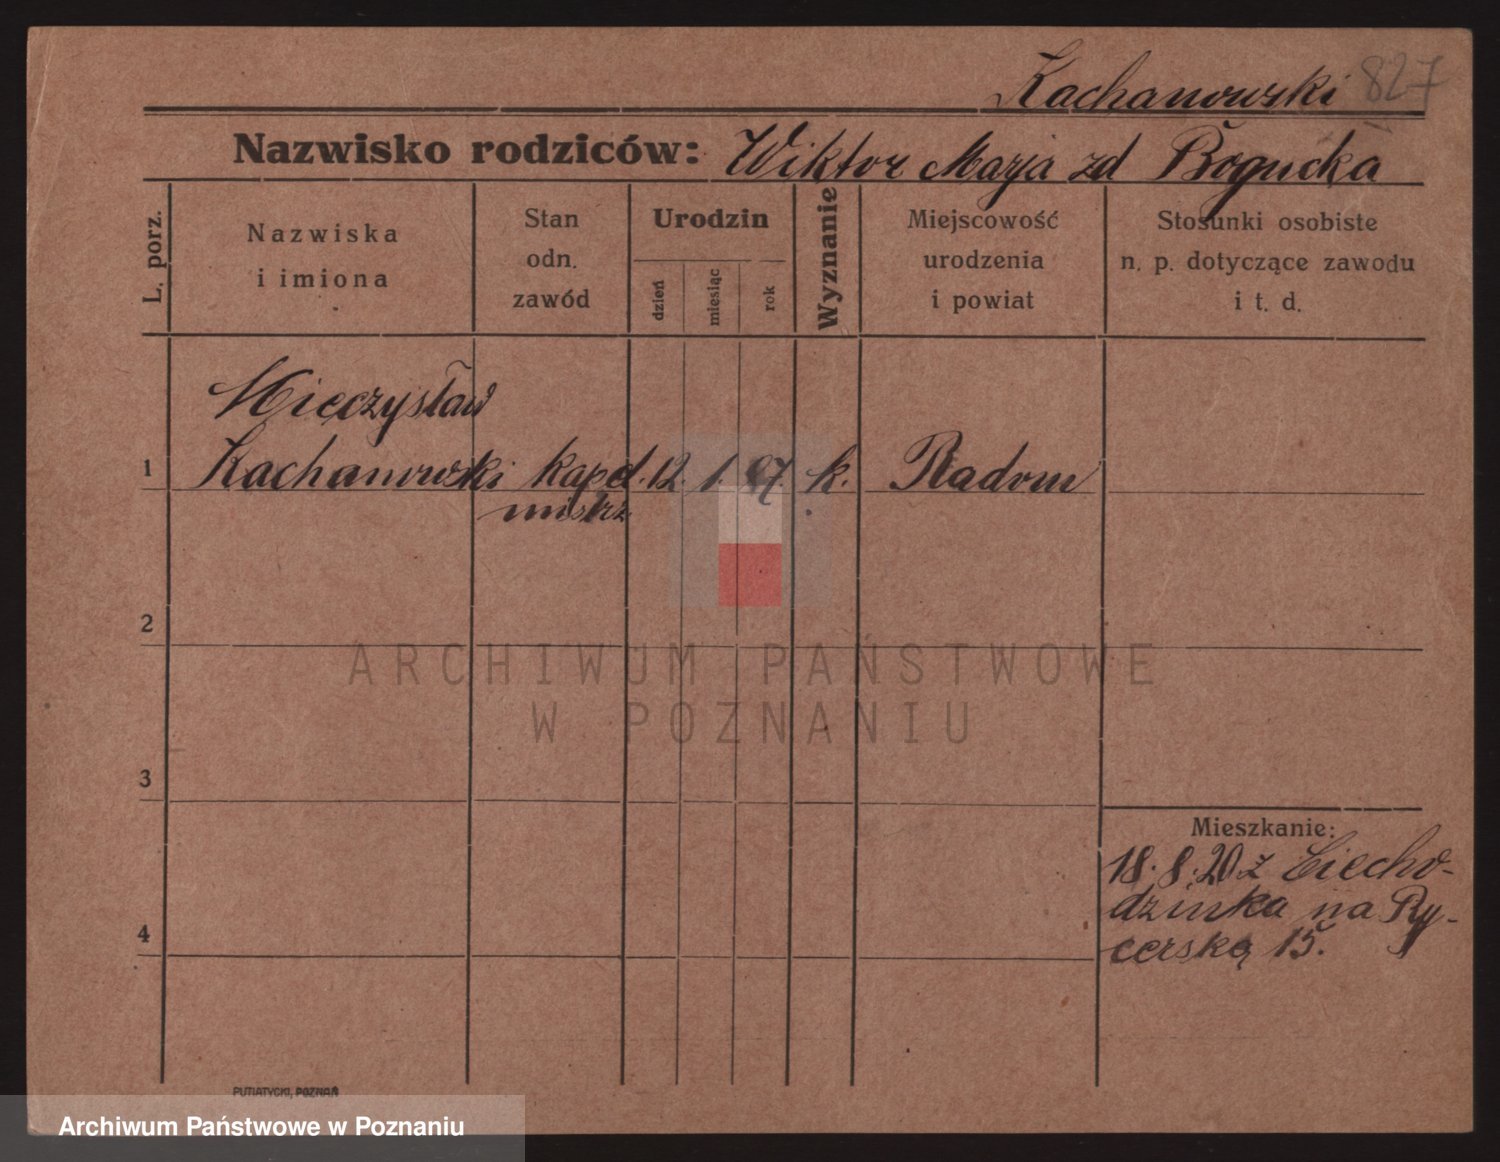 Kachanowski 827
Nazwisko rodziców: Wiktor Marja zd Bogucka
L. porz.
Nazwiska
i imiona
Stan
odn.
zawód
Urodzin
dzień
miesiąc
rok
Wyznanie
Miejscowość
urodzenia
i powiat
Stosunki osobiste
n. p. dotyczące zawodu
i t. d.
Mieczysław
1 Kachanowski kapel. 12. 1. 87. k. Radom
mistrz
2
ARCHIWUM PAŃSTWOWE
W POZNANIU
3
Mieszkanie:
18. 8. 20 z Ciecho-
dzinka na Ry-
4 cerską 15.
PUTIATYCKI, POZNAŃ
Archiwum Państwowe w Poznaniu